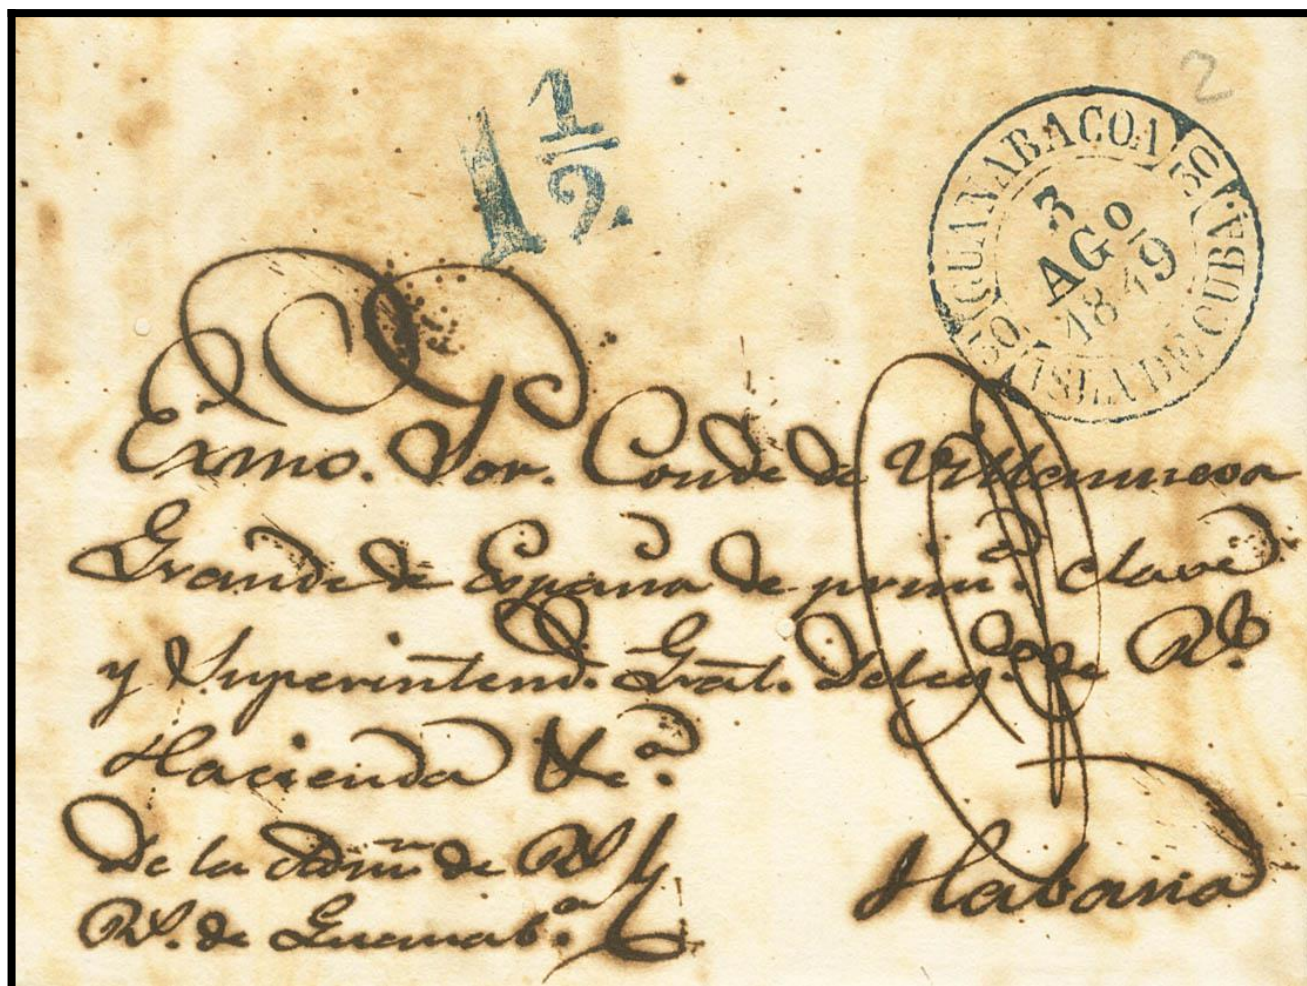 2
1 1/2.
GUANABACOA
30.
3
AGO
1849
30.
ISLA DE CUBA.
Exmo. Sor. Conde de Villanueva
Grande de España de primª. clase
y Superintend. Gral. Deleg.do de Rl.
Hacienda &c.ª
De la Admn. de
Rs. de Guanab.ª
Habana